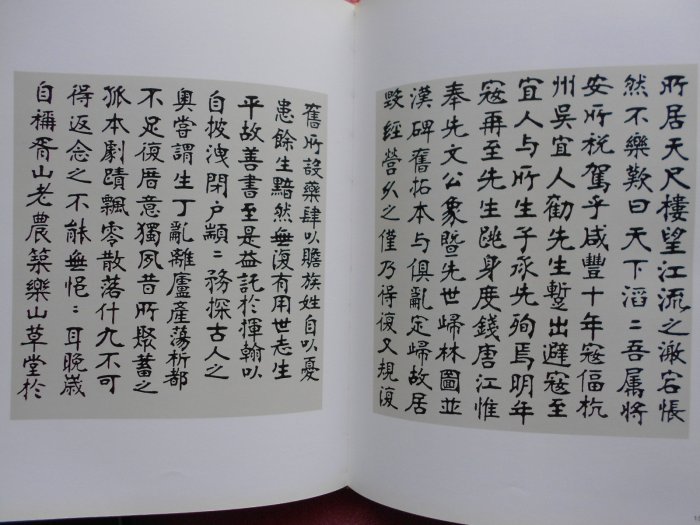 所居天尺樓望江流之澉宕悵
然不樂歎曰天下滔二吾属將
安所稅駕乎咸豐十年寇偪杭
州吳宜人勸先生蹔出避寇至
宜人与所生子承先殉焉明年
寇再至先生跳身度錢唐江惟
奉先文公象暨先世歸林圖並
漢碑舊拓本与俱亂定歸故居
毀經營久之僅乃得復又規復
舊所設藥肆以贍族姓自以憂
患餘生黯然無復有用世志生
平故善書至是益託於揮翰以
自披洩閉户顓二務探古人之
奧嘗謂生丁亂離廬產蕩析都
不足復厝意獨夙昔所聚蓄之
孤本劇蹟飄零散落什九不可
得返念之不能無悒二耳晚歲
自稱胥山老農築樂山草堂於